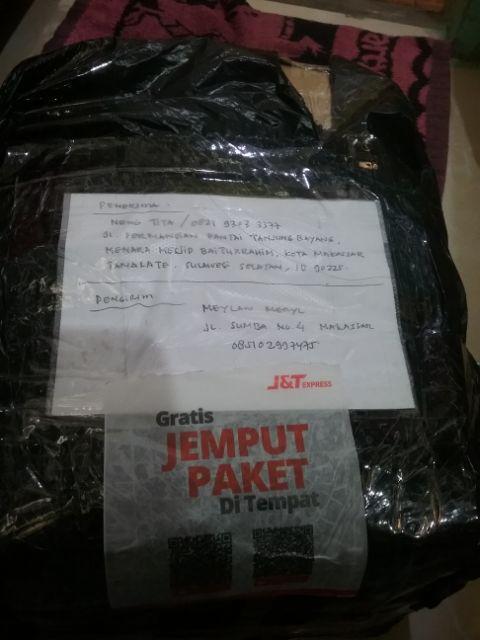 PENERIMA
NENG TITA / 0821 9373 3377
JL PERMANDIAN PANTAI TANJUNG BAYANG,
MENARA MESJID BAITURRAHIM, KOTA MAKASSAR
TAMALATE. SULAWESI SELATAN, ID 90225.
PENGIRIM
MEYLAN MERYL
JL. SUMBA NO. 4 MAKASSAR
085102997475
J&T EXPRESS
Gratis
JEMPUT
PAKET
Di Tempat